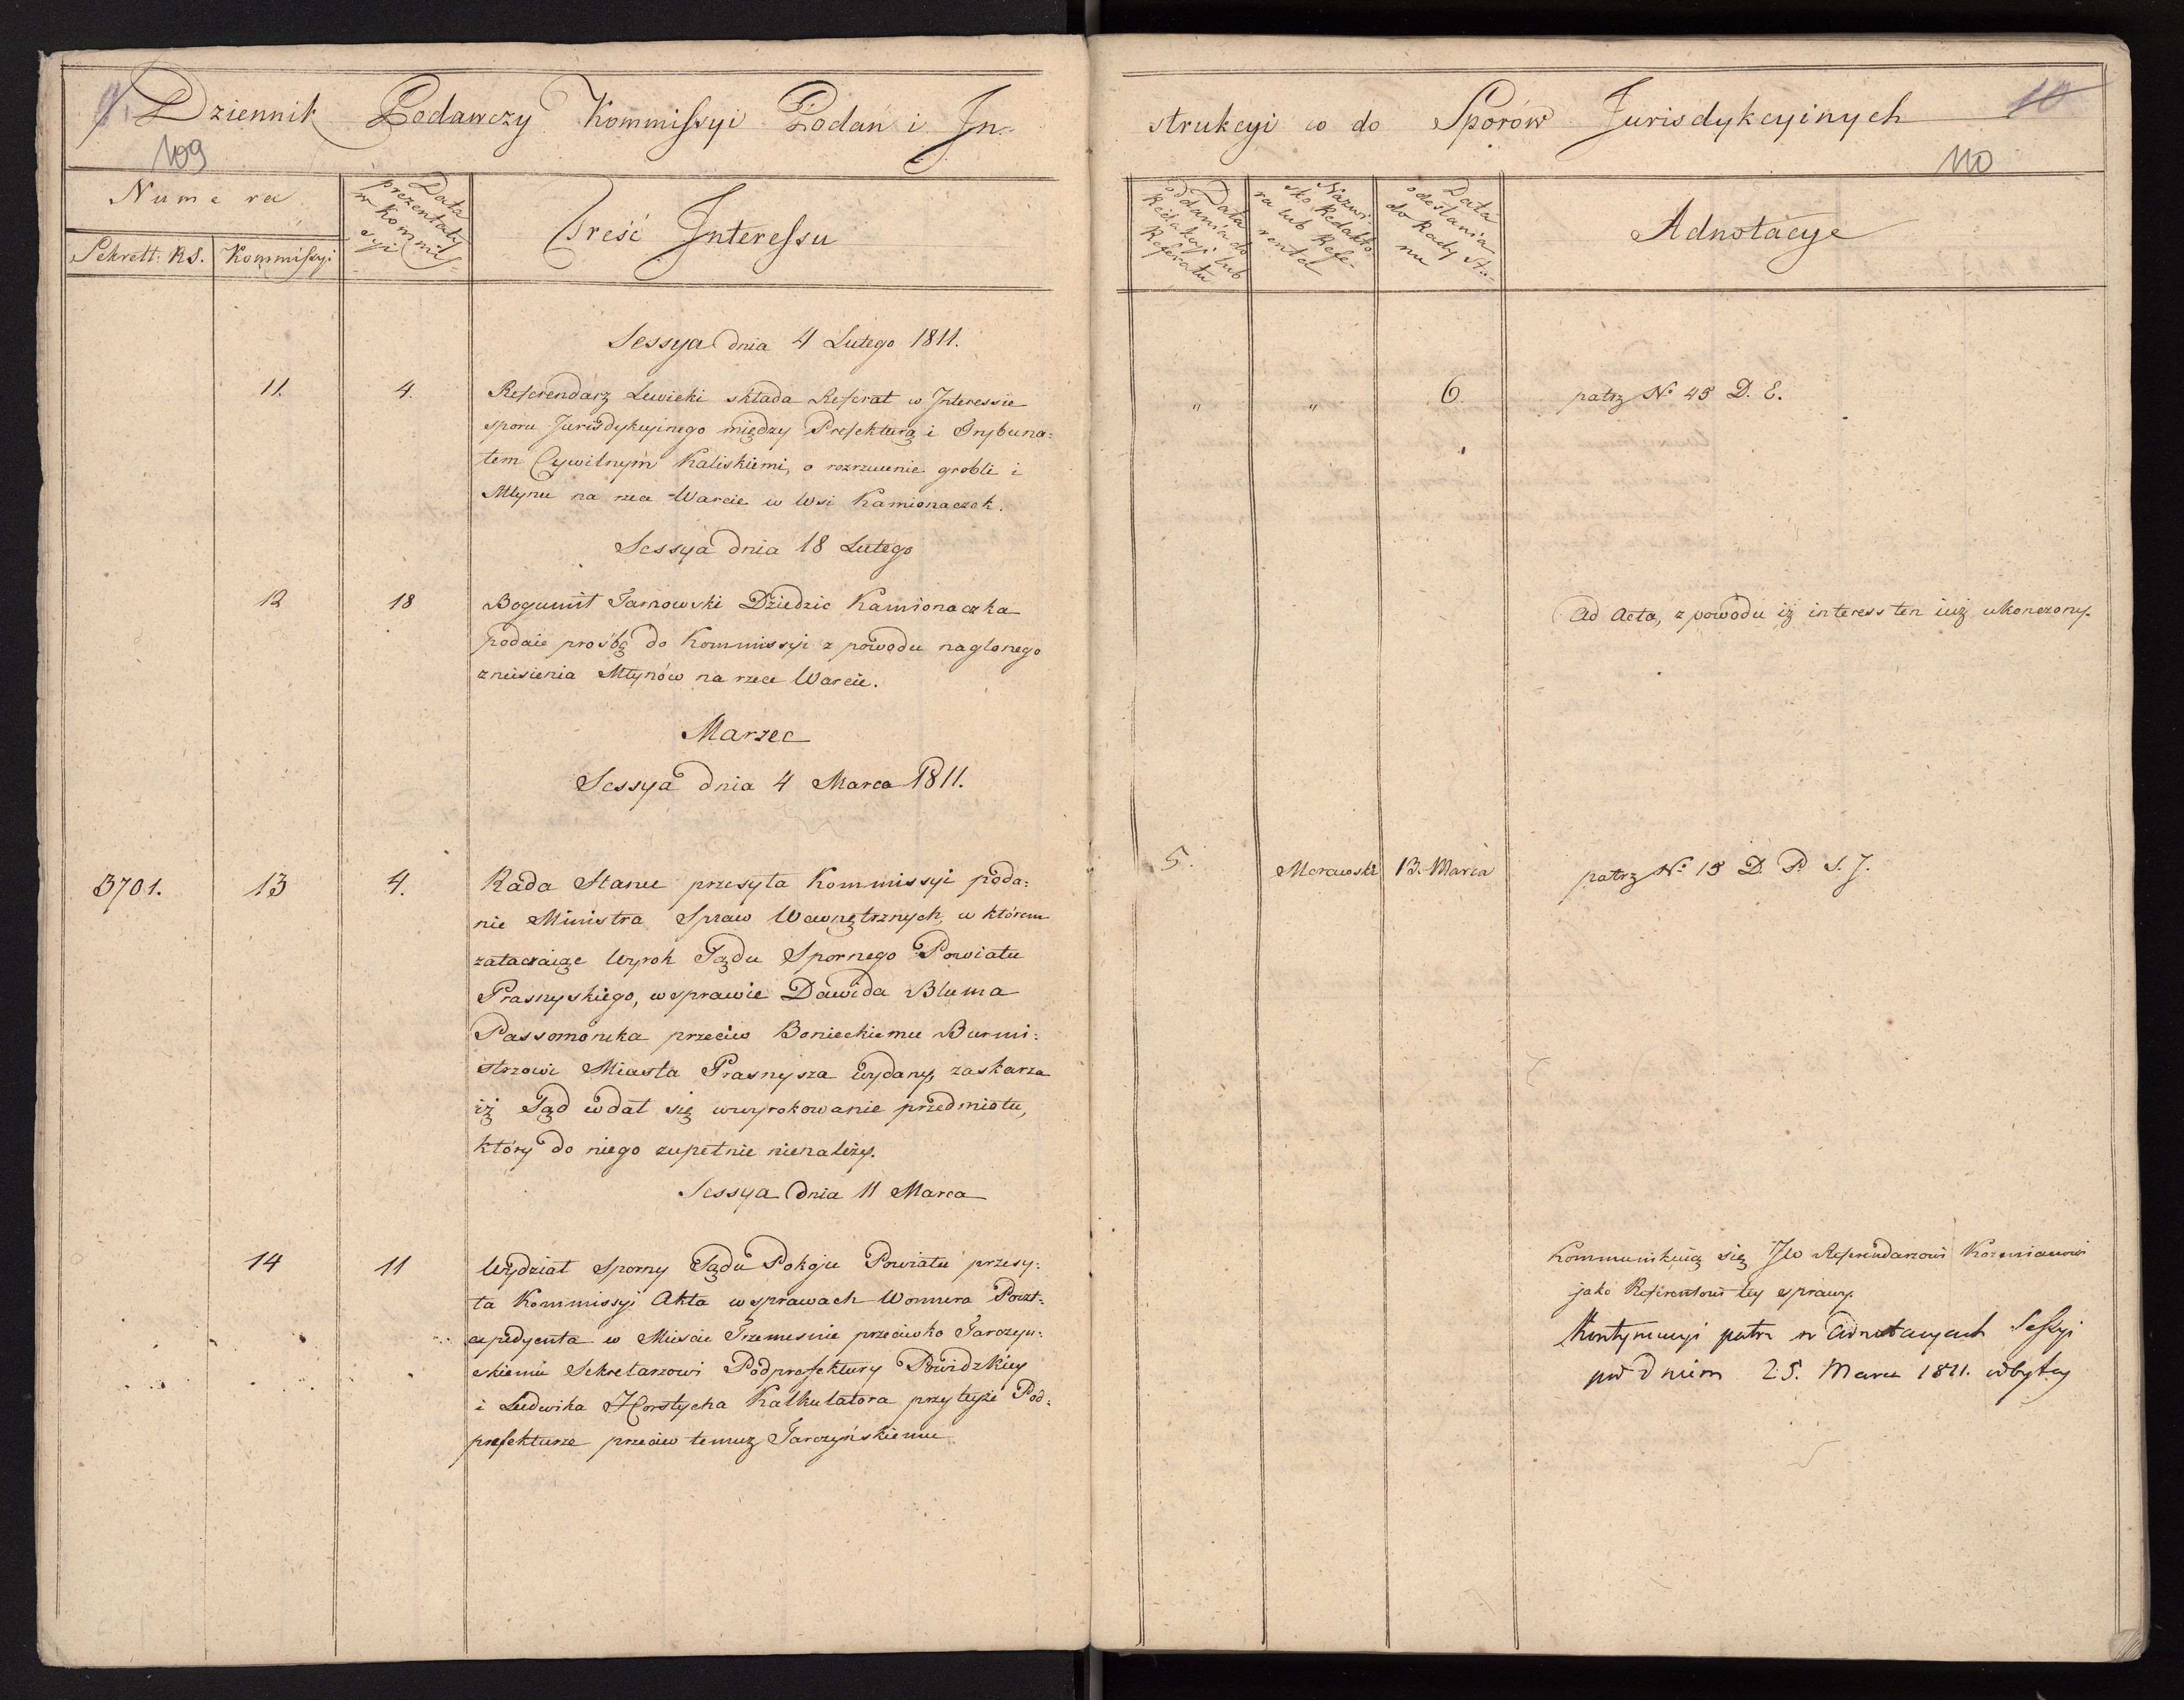 Dziennik Podawczy Kommissyi Podań i In-
109
Numera
Sekrett: RS.
Kommissyi
Data
prezentaty
w Kommis-
syi
Treść Interessu
Sessya dnia 4 Lutego 1811.
11. 4. Referendarz Lewicki składa Referat w Interessie
sporu Jurisdykcyinego między Prefekturą i Trybuna:
łem Cywilnym Kaliskiemi, o rozrzucenie grobli i
Młynu na rzece Warcie w Wsi Kamionaczek.
Sessya dnia 18 Lutego
12 18 Bogumił Tarnowski Dziedzic Kamionaczka
podaie prośbę do Kommissyi z powodu naglonego
zniesienia Młynów na rzece Warcie.
Marzec
Sessya dnia 4 Marca 1811.
3701. 13 4. Rada Stanu przesyła Kommissyi poda:
nie Ministra Spraw Wewnętrznych, w którem
załączaiąc Wyrok Sądu Spornego Powiatu
Prasnyskiego, w sprawie Dawida Bluma
Passomonika przeciw Bonieckiemu Burmi:
strzowi Miasta Prasnysza wydany, zaskarza
iż Sąd wdał się w wyrokowanie przedmiotu,
który do niego zupełnie nienależy.
Sessya dnia 11 Marca
14 11 Wydział Sporny Sądu Pokoju Powiatu przesy:
ła Kommissyi Akta w sprawach Wonnera Poczt:
expedyenta w Mieście Trzemesnie przeciwko Tarczyń:
skiemu Sekretarzowi Podprefektury Powidzkiey
i Ludwika Horstycha Kalkulatora przy teyże Pod:
prefekturze przeciw temuż Tarczyńskiemu
strukcyi co do Sporów Jurisdykcyinych
10
110
Data
oddania do
Redakcyi lub
Referatu
Nazwi-
sko Redakto
ra lub Refe-
renta
Data
odesłania
do Rady Sta-
nu
Adnotacye
" " 6. patrz No 45 D. E.
Ad Acta, z powodu iż interess ten iuż ukończony.
5. Morawski 13. Marca patrz No 15 D. P. S. J.
Kommunikuią się JW Referendarzowi Kozmianowi
jako Referentowi tey sprawy.
Kontynuacyi patrz w Adnotacyach Sessyi
pod dniem 25. Marca 1811. odbytey